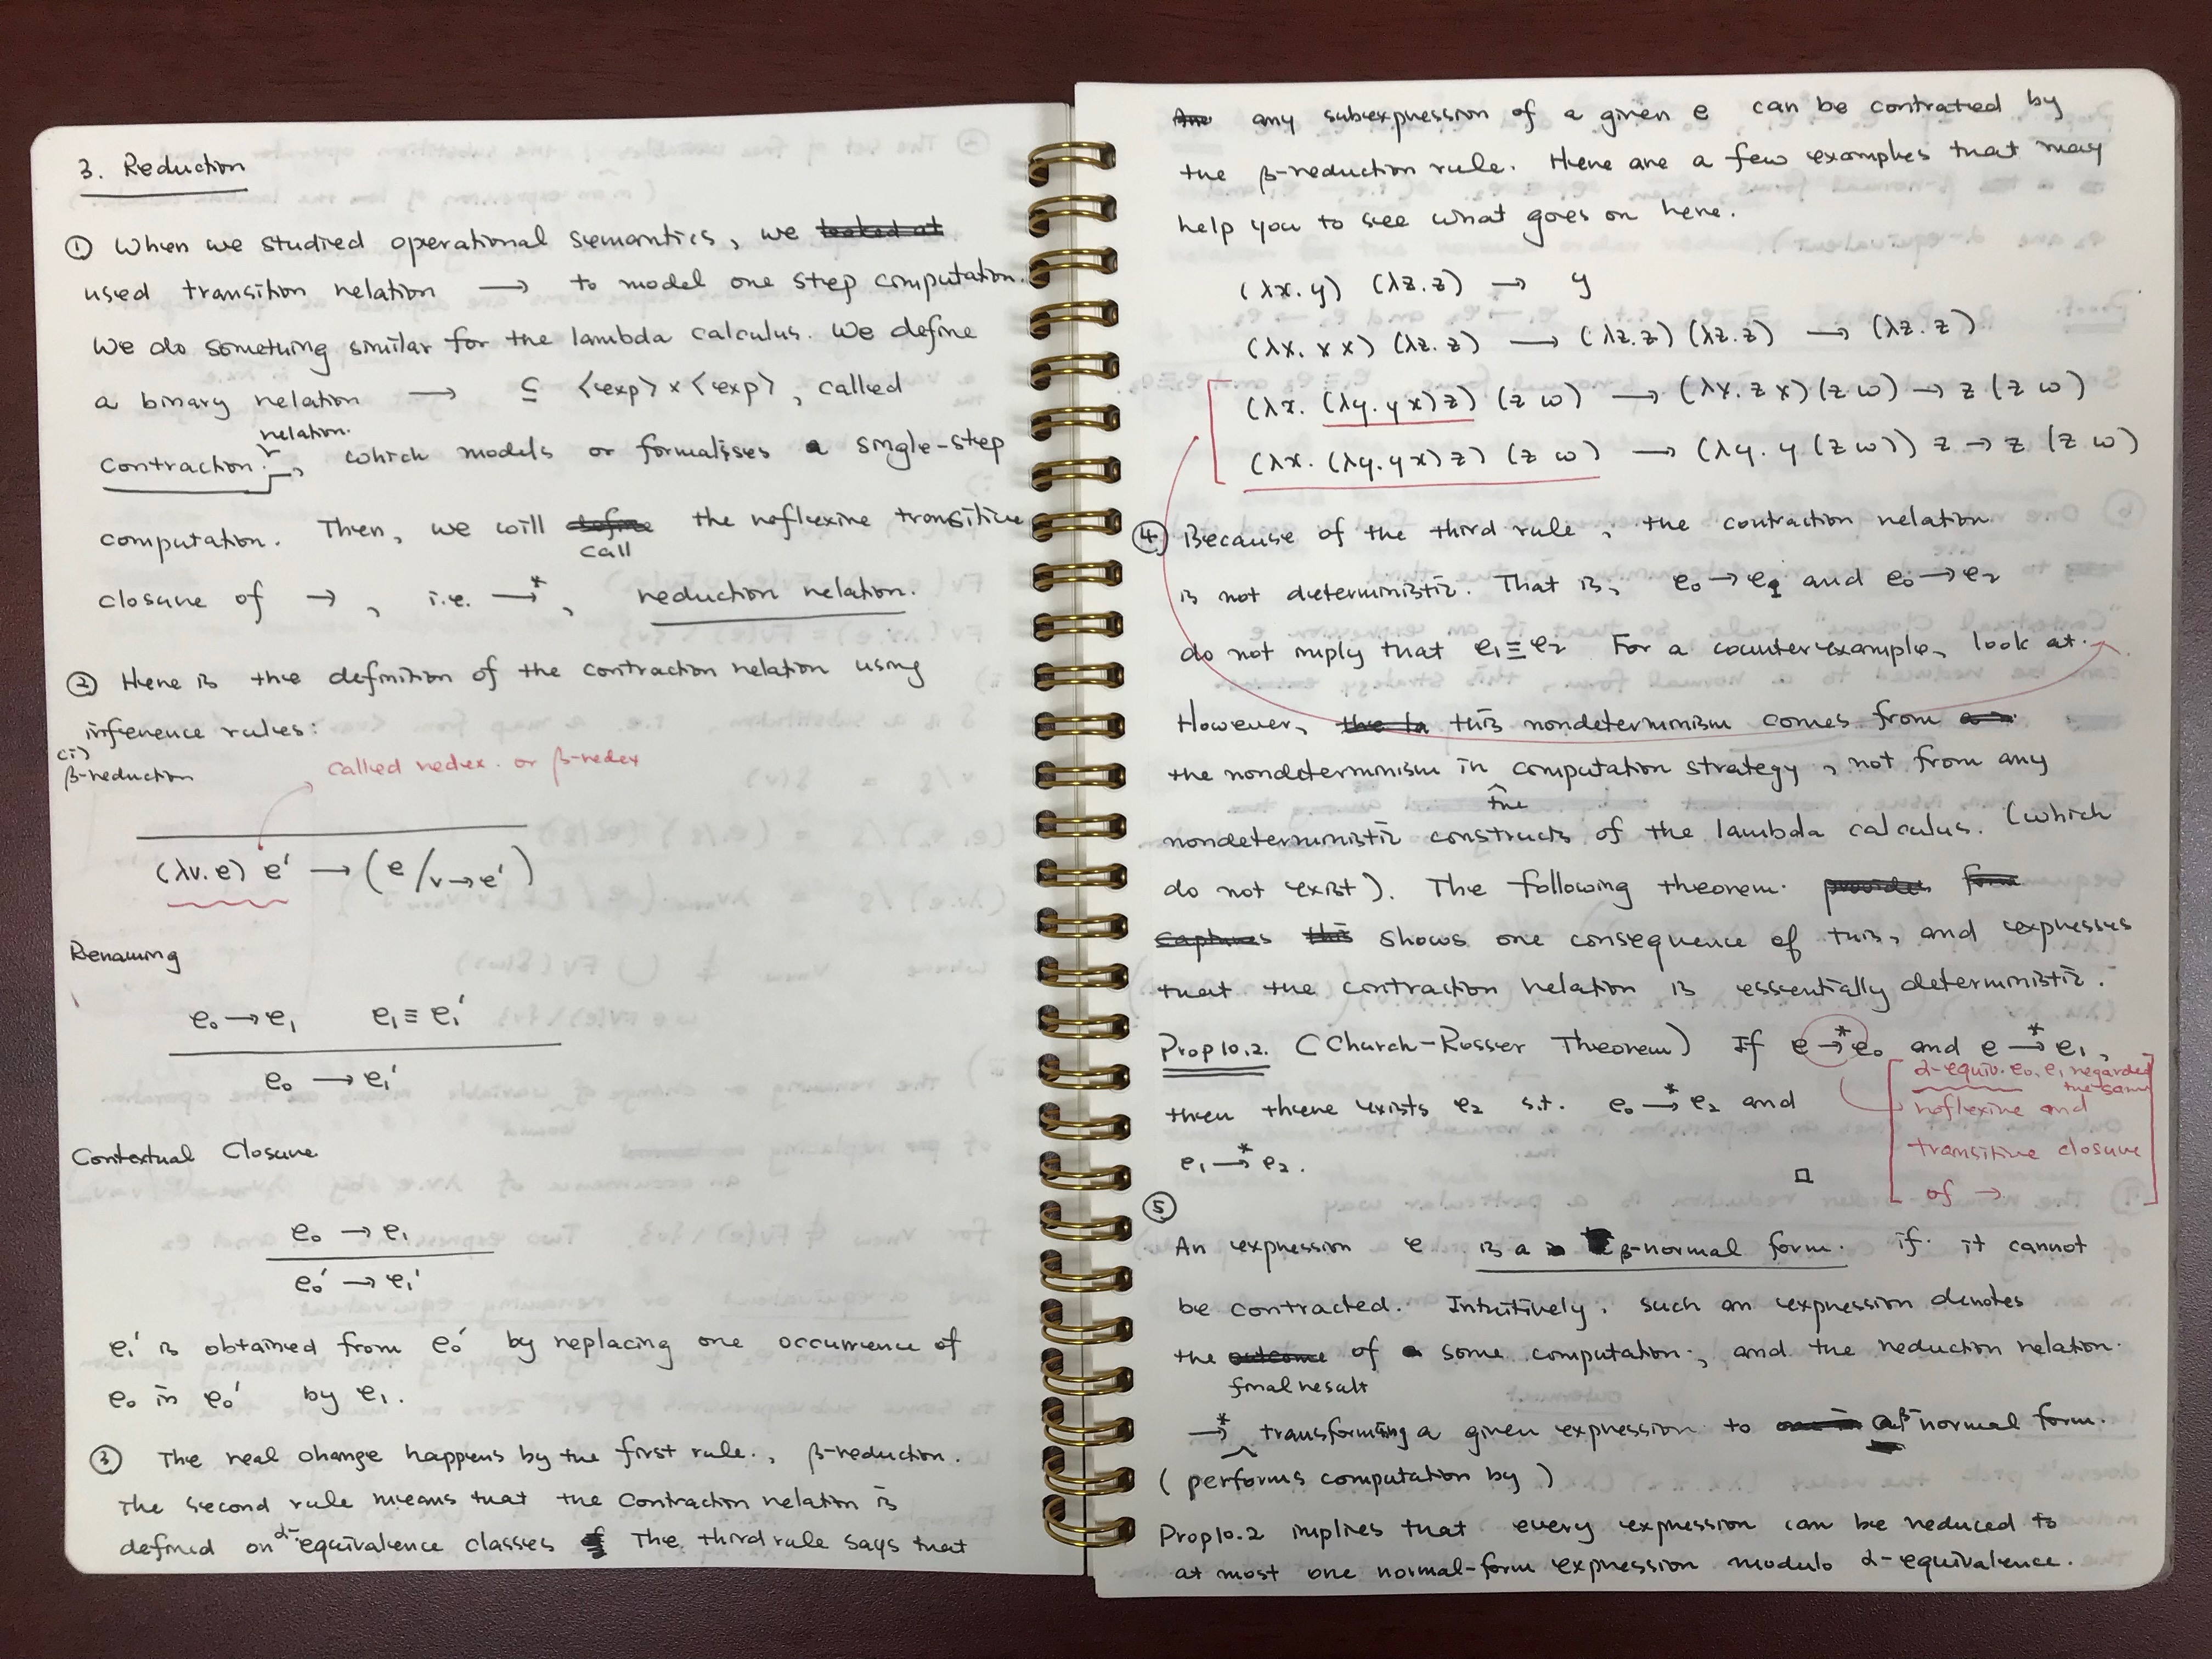 3. Reduction
① When we studied operational semantics, we looked at
used transition relation → to model one step computation.
We do something similar for the lambda calculus. We define
a binary relation → ⊆ <exp> x <exp>, called
relation.
contraction →, which models or formalises a single-step
computation. Then, we will define the reflexive transitive
call
closure of →, i.e. →*, reduction relation.
② Here is the definition of the contraction relation using
inference rules:
(i)
β-reduction
called redex. or β-redex
(λv.e) e' → (e/v→e')
Renaming
e₀ → e₁ e₁ ≡ e₁'
e₀ → e₁'
Contextual Closure
e₀ → e₁
e₀' → e₁'
e₁' is obtained from e₀' by replacing one occurrence of
e₀ in e₀' by e₁.
③ The real change happens by the first rule., β-reduction.
The second rule means that the contraction relation is
defined on α-equivalence classes The third rule says that
any subexpression of a given e can be contrated by
the β-reduction rule. Here are a few examples that may
help you to see what goes on here.
(λx.y) (λz.z) → y
(λx. x x) (λz. z) → (λz.z) (λz.z) → (λz.z)
(λx. (λy. y x) z) (z w) → (λx. z x) (z w) → z (z w)
(λx. (λy. y x) z) (z w) → (λy. y (z w)) z → z (z w)
④ Because of the third rule, the contraction relation
is not deterministic. That is, e₀ → e₁ and e₀ → e₂
do not imply that e₁ ≡ e₂ For a counterexample, look at.
However, this nondeterminism comes from
the nondeterminism in computation strategy, not from any
the
nondeterministic constructs of the lambda calculus. (which
do not exist). The following theorem. provides form
captures this shows one consequence of this, and expresses
that the contraction relation is essentially deterministic.
Prop 10.2. (Church-Rosser Theorem) If e →* e₀ and e →* e₁,
α-equiv. e₀, e₁ regarded
the same
then there exists e₂ s.t. e₀ →* e₂ and
reflexive and
e₁ →* e₂. □
transitive closure
of →
⑤
An expression e is a β-normal form. if it cannot
be contracted. Intuitively, such an expression denotes
the outcome of a some computation, and the reduction relation.
final result
→* transforming a given expression to a β-normal form.
(performs computation by)
Prop 10.2 implies that every expression can be reduced to
at most one normal-form expression modulo α-equivalence.